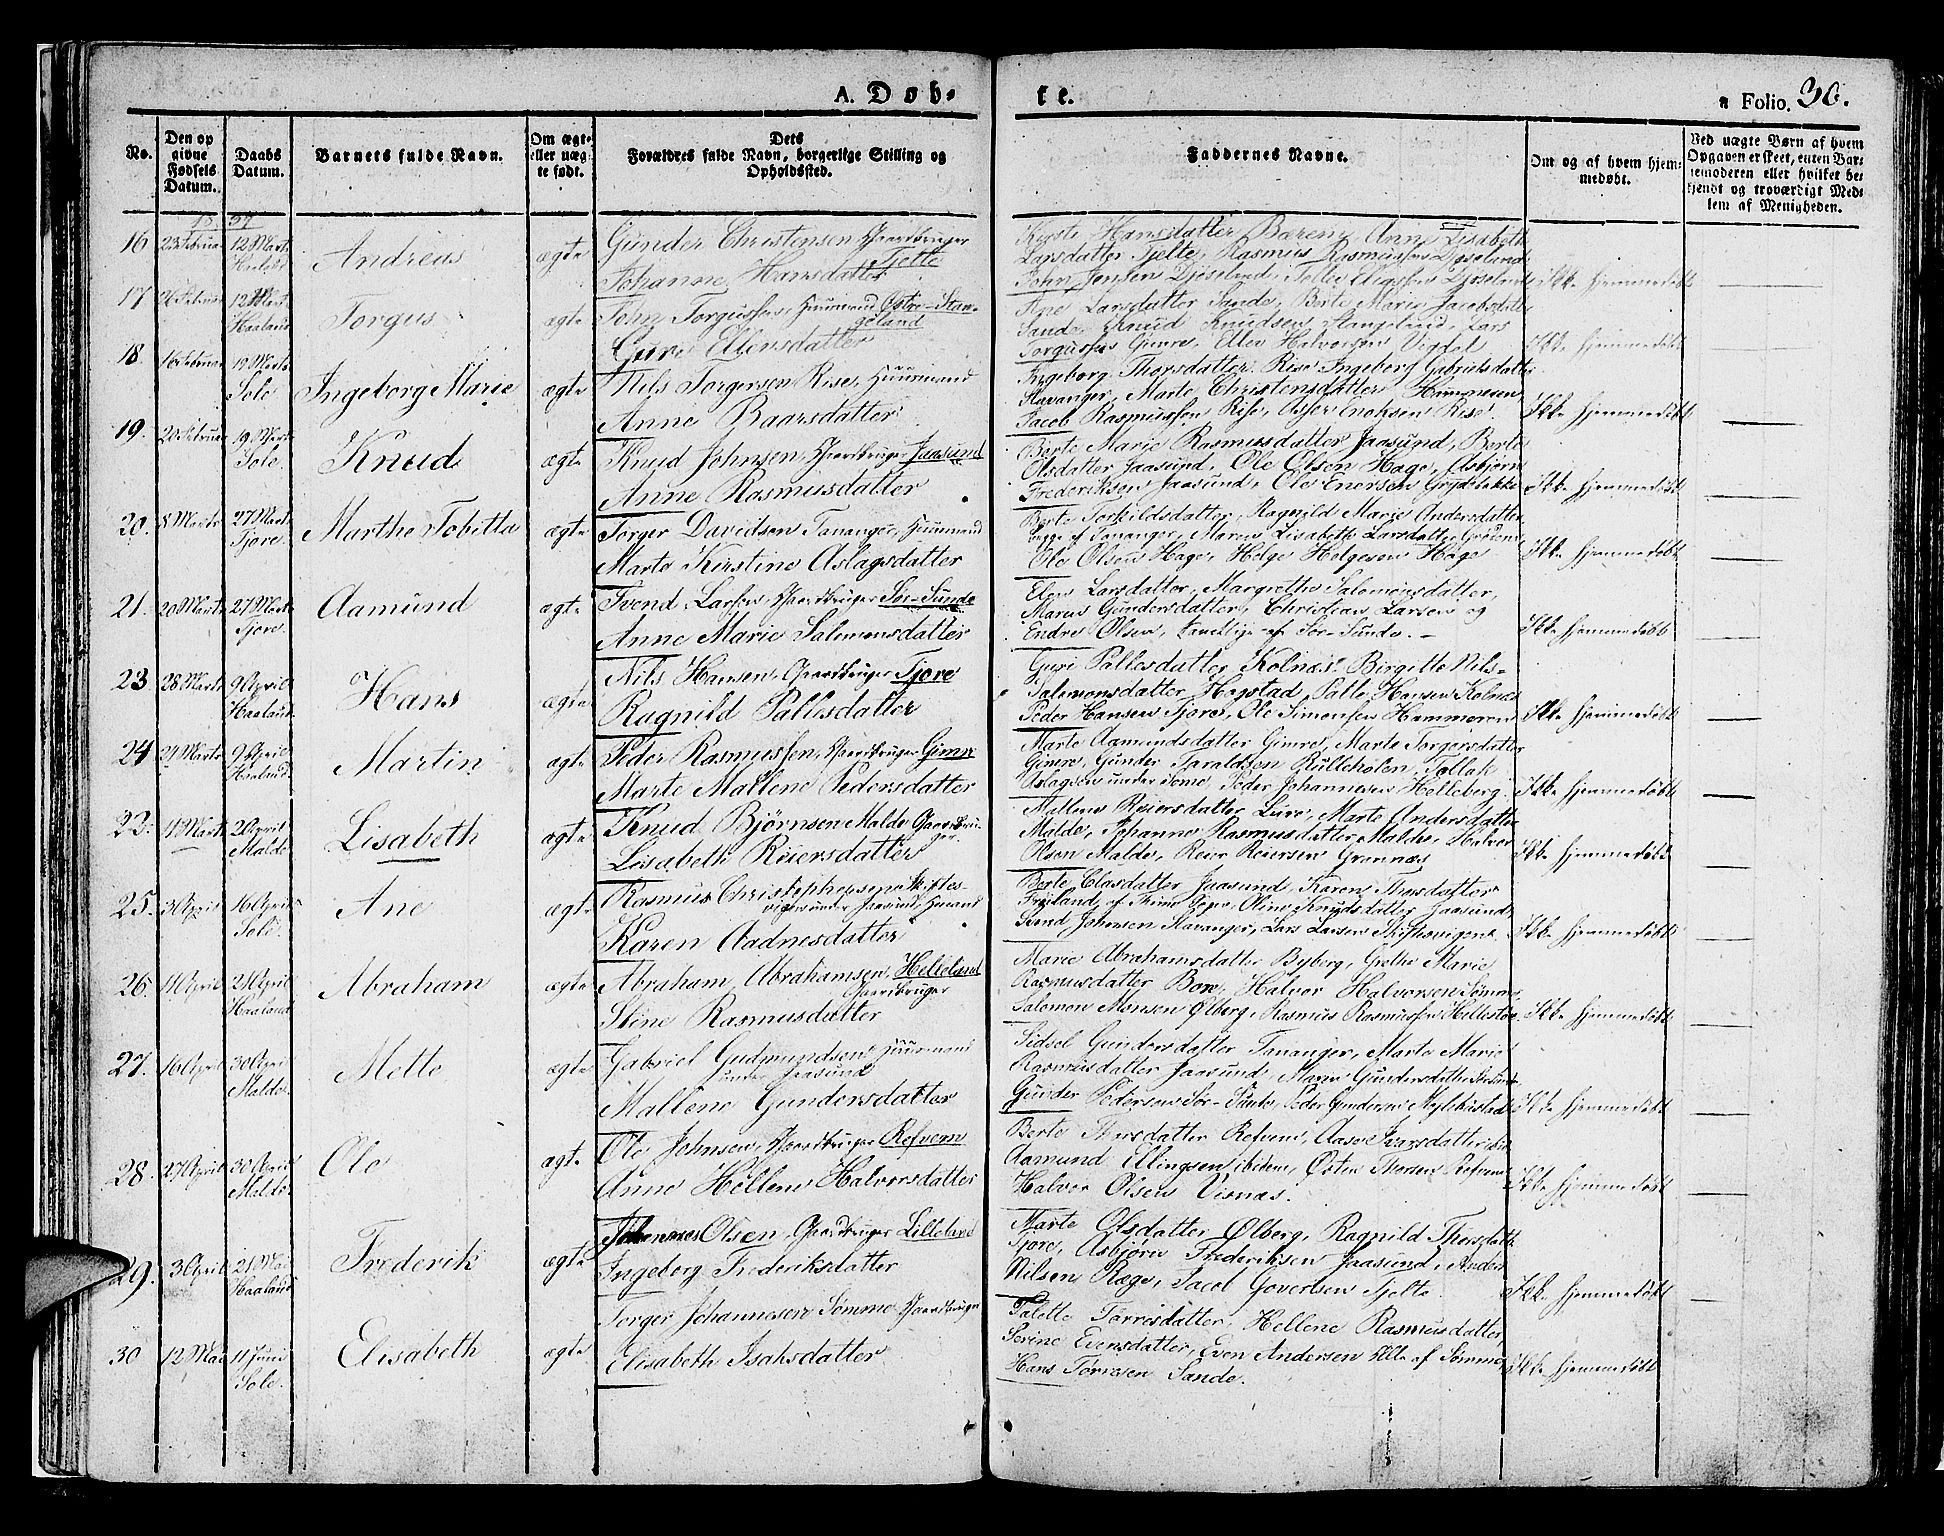 A. Døb-
te.
a Folio. 30.
No.
Den op
givne
Fødsels
Datum.
Daabs
Datum.
Barnets fulde Navn.
Om ægte
eller uæg-
te født.
Dets
Forældres fulde Navn, borgerlige Stilling og
Opholdssted.
Faddernes Navne.
Om og af hvem hjem-
medøbt.
Ved uægte Børn af hvem
Opgaven er skeet, enten Bar-
nemoderen eller hvilket be-
kjendt og troværdigt Med-
lem af Menigheden.
1837
16 23 Februar 12 Marts Haaland Andreas ægte Gunder Christensen Gaardbruger Tjelte
Johanne Hansdatter
Kirste Hansdatter Anne Lisabeth
Larsdatter Tjelte, Rasmus Rasmussen
John Jensen
Ikke hjemmedøbt
17 26 Februar 12 Marts Haaland Torgus ægte John Torgussen, Huusmand Østre-Stan-
geland
Guro Ellensdatter
Ane Larsdatter Sande, Berte Marie Jacobsdatter
Sande, Knud Knudsen Stangeland, Lars
Torgussen Gimre, Ellev Halvorsen Vigdel
Ikke hjemmedøbt
18. 16 Februar 19 Marts Sole Ingeborg Marie ægte Nils Torgersen Rise, Huusmand
Anne Baarsdatter
Ingeborg Thorsdatter Rise Ingeborg Gabrielsdatter
Stavanger, Marte Christensdatter Hammeren
Jacob Rasmussen Rise, Enoksen Rise.
Ikke hjemmedøbt
19. 20 Februar 19 Marts Sole. Knud ægte Knud Johnsen, Gaardbruger Jaasund
Anne Rasmusdatter
Berte Marie Rasmusdatter Jaasund, Berte
Olsdatter Jaasund, Ole Olsen Hage, Asbjørn
Frederiksen Jaasund, Ole Enersen
Ikke hjemmedøbt
20. 8 Marts 27 Marts Tjore. Marthe Tobitta ægte Torger Davidsen Tananger, Huusmand
Marte Kirstine Aslagsdatter
Berte Torkildsdatter, Ragnild Marie Andersdatter
begge af Tananger, Maren Lisabeth Larsdatter
Ole Olsen Hage, Helge Helgesen Hage
Ikke hjemmedøbt
21. 20 Marts 27 Marts Tjore. Aamund ægte Svend Larsen, Gaardbruger Sør-Sunde
Anne Marie Salomonsdatter
Elen Larsdatter, Margrethe Salomonsdatter,
Maren Gundersdatter, Christian Larsen og
Endre Olsen, samtlige af Sør-Sunde.
Ikke hjemmedøbt
23 28 Marts 9 April Haaland. Hans ægte Nils Hansen, Gaardbruger Tjore
Ragnild Pallesdatter
Guri Pallesdatter Kolnæs Birgitte Nils-
Salomonsdatter Hogstad, Palle Hansen Kolnæs
Peder Hansen Tjore, Ole Simonsen Hammeren
Ikke hjemmedøbt
24 21 Marts 9 April Haaland Martin ægte Peder Rasmussen, Gaardbruger Gimre
Marte Mallene Pedersdatter
Marte Aamundsdatter Gimre, Marte Torgersdatter
Gimre, Gunder Taraldsen Rulleholen, Tollak
Aslagsen Peder Johannesen Helleberg.
Ikke hjemmedøbt
22. 4 Marts 2 April Malde Lisabeth ægte Knud Bjørnsen Malde Gaardbru-
ger.
Lisabeth Reiersdatter
Mallene Reiersdatter Lure, Marte Andersdatter
Malde, Johanne Rasmusdatter Malde, Halvor
Olsen Malde, Reier Reiersen Grannæs
Ikke hjemmedøbt
25. 3 April 16 April Sole. Ane ægte Rasmus Christophersen Skiftes-
vigen under Jaasund, Huusmand
Karen Aadnesdatter
Berte Clasdatter Jaasund, Karen Thorsdatter
Olene Knudsdatter Jaasund,
Johnsen Stavanger, Lars Larsen Skiftesvigen.
Ikke hjemmedøbt
26. 11 April 21 April Haaland Abraham ægte Abraham Abrahamsen, Helleland
Gaardbruger
Stine Rasmusdatter
Marie Abrahamsdatter Byberg, Grethe Marie
Rasmusdatter Bore, Halvor Halvorsen Sømme,
Salomon Monsen Ølberg, Rasmus Rasmussen
Ikke hjemmedøbt
27. 16 April 30 April Malde. Mette ægte Gabriel Gudmundsen Huusmand
under Jaasund
Mallene Gundersdatter
Sidsel Gundersdatter Tananger, Marte Marie
Rasmusdatter Jaasund, Maren Gundersdatter
Gunder Pedersen Sør-Sunde, Peder Gundersen Myklebustad
Ikke hjemmedøbt
28. 27 April 30 April Malde. Ole ægte Ole Johnsen, Gaardbruger Refvem
Anne Hellene Halvorsdatter
Berte Iversdatter Refvem, Aase Ivarsdatter
Aamund Ellingsen ibidem, Østen Thorsen Refvem
Halvor Olsen Visnæs.
Ikke hjemmedøbt
29. 3 April 21 Mai Haaland Frederik ægte Johannes Olsen, Gaardbruger Lilleland
Ingeborg Frederiksdatter
Marte Olsdatter Ølberg, Ragnild Thorsdatter
Tjore, Asbjørn Frederiksen Jaasund, Anders
Nilsen Ræge, Jacob Govertsen Tjelte.
Ikke hjemmedøbt
30 12 Mai 11 Juni Sole. Elisabeth ægte Torger Johannesen Sømme, Gaardbruger
Elisabeth Isaksdatter
Palette Tørrisdatter, Hellene Rasmusdatter,
Serine Evensdatter, Even Andersen Alle af Sømme,
Hans Tørrisen Sande.
Ikke hjemmedøbt